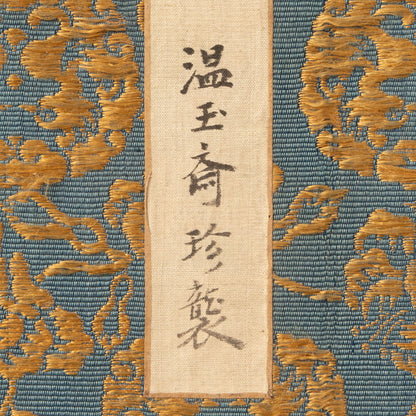 温玉斎珍襲